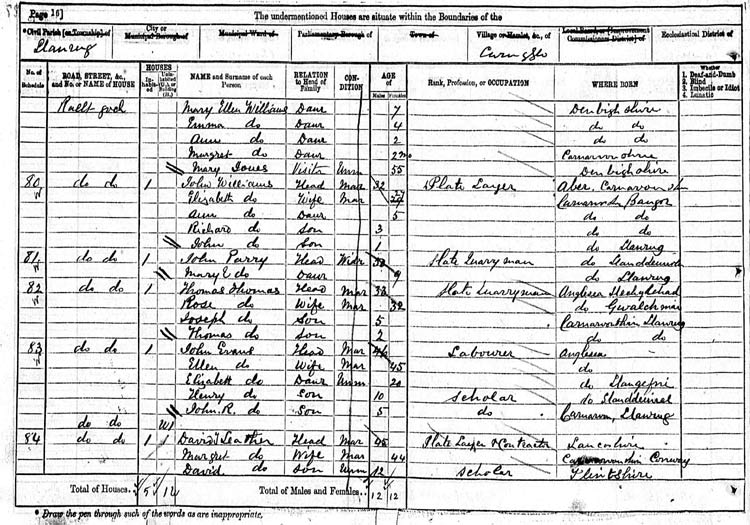 Page 16] The undermentioned Houses are situate within the Boundaries of the
*Civil Parish [or Township] of City or Municipal Borough of Municipal Ward of Parliamentary Borough of Town of Village or Hamlet, &c., of Local Board, or [Improvement Commissioners District] of Ecclesiastical District of
Llanrug
No. of Schedule ROAD, STREET, &c., and No. or NAME of HOUSE HOUSES Inhabited Uninhabited (U.), or Building (B.) NAME and Surname of each Person RELATION to Head of Family CONDITION AGE of Males Females Rank, Profession, or OCCUPATION WHERE BORN Whether 1. Deaf-and-Dumb 2. Blind 3. Imbecile or Idiot 4. Lunatic
Mary Ellen Williams Daur 7 Denbighshire
Emma do Daur 4 do do
Ann do Daur 2 do do
Margret do Daur 2mo Carnarvonshire
Mary Jones Visitr Unm 55 Denbighshire
80 do do 1 John Williams Head Mar 32 Plate Layer Aber, Carnarvon
Elizabeth do Wife Mar Bangor
Ann do Daur 5 do do
Richard do Son 3 do do
John do Son 1 do Llanrug
81 do do 1 John Parry Head Widr 33 Slate Quarryman do
Mary E do Daur 9 do Llanrug
82 do do 1 Thomas Thomas Head Mar 33 Slate Quarryman Anglesea
Rose do Wife Mar 32 do Gwalchmai
Joseph do Son 5 Llanrug
Thomas do Son 2 do do
83 do do 1 John Evans Head Mar 46 Labourer Anglesea
Ellen do Wife Mar 45 do
Elizabeth do Daur Unm 20 do Llangefni
Henry do Son 10 Scholar do
John R. do Son 5 do Carnarvon, Llanrug
do do
84 do do 1 1 David Leather Head Mar 45 Plate Layer & Contractor Lancashire
Margret do Wife Mar 44 Conway
David do Son Unm 12 Scholar Flintshire
Total of Houses.. 5 Total of Males and Females.. 12 12
* Draw the pen through such of the words as are inappropriate.